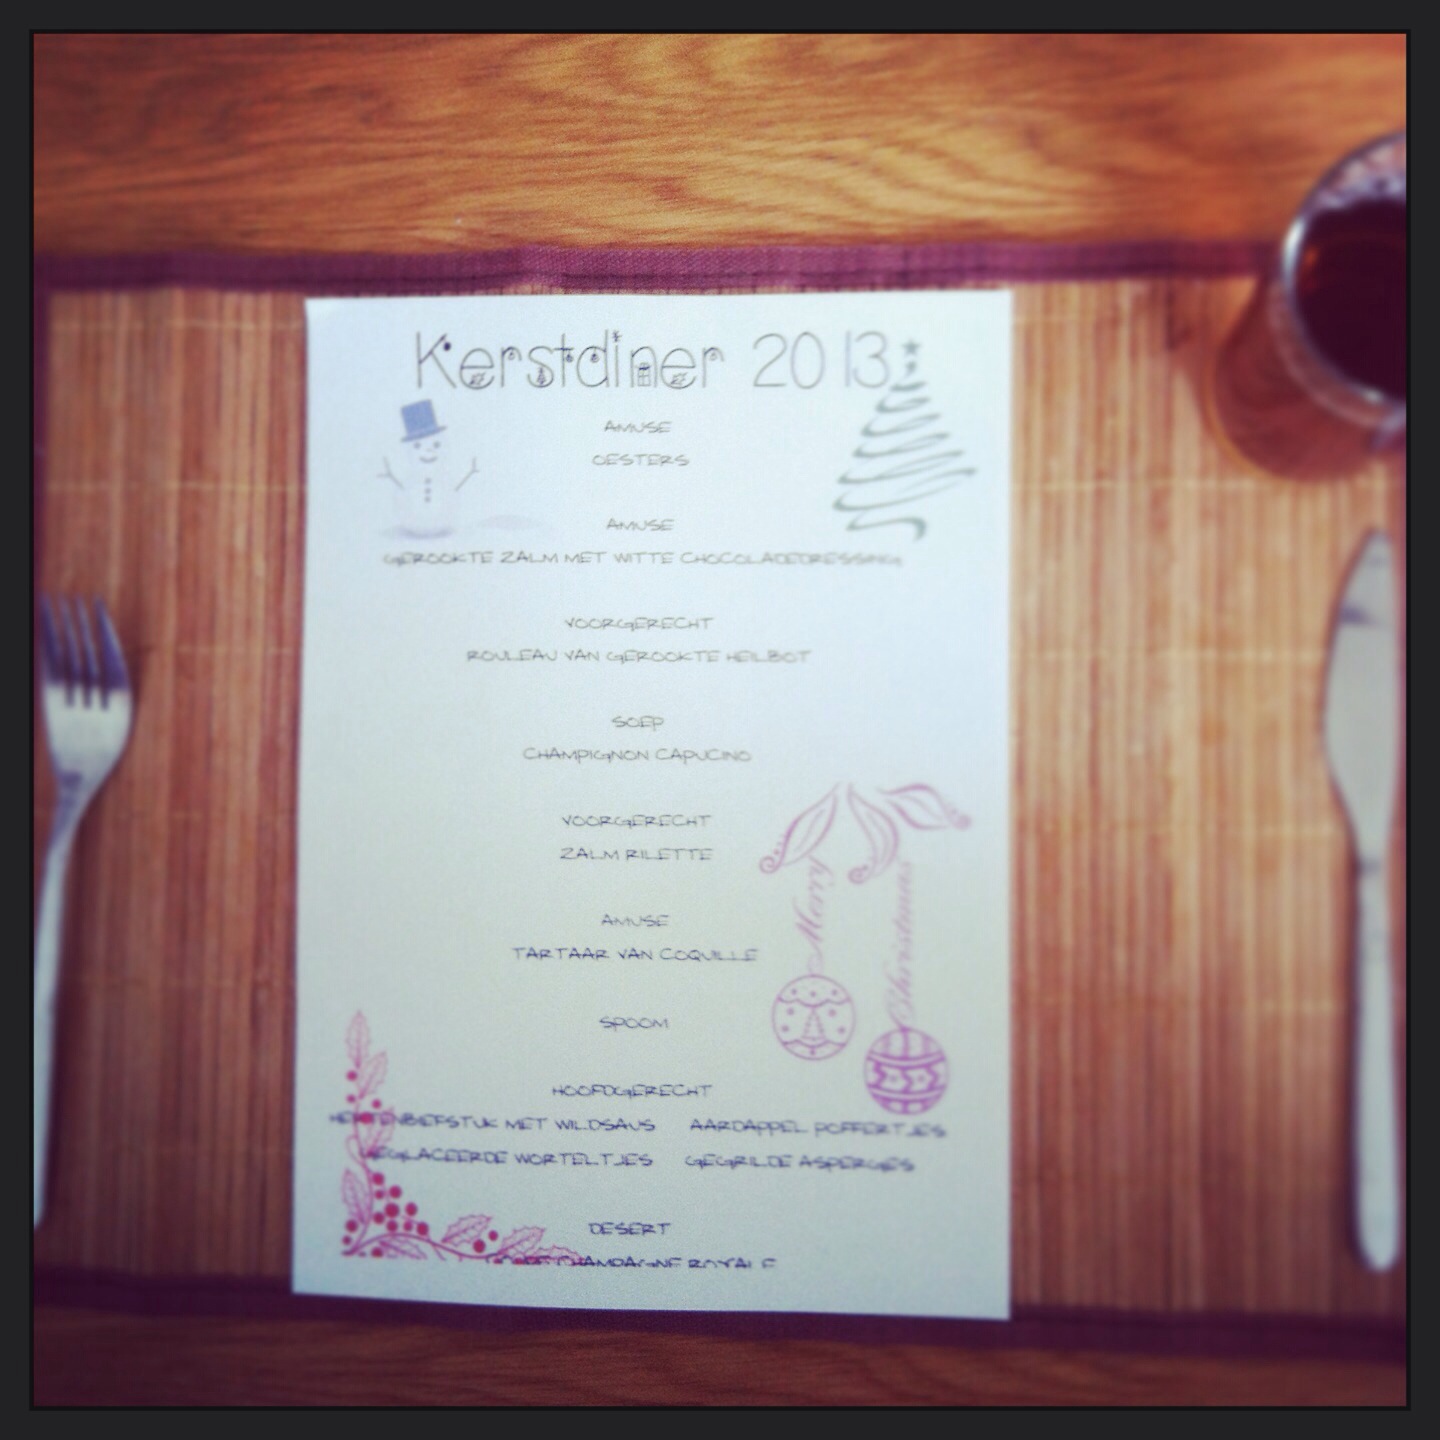 Kerstdiner 2013
AMUSE
OESTERS
AMUSE
GEROOKTE ZALM MET WITTE CHOCOLADEDRESSING
VOORGERECHT
ROULEAU VAN GEROOKTE HEILBOT
SOEP
CHAMPIGNON CAPUCINO
VOORGERECHT
ZALM RILETTE
AMUSE
TARTAAR VAN COQUILLE
Merry
Christmas
SPOOM
HOOFDGERECHT
HERTENBIEFSTUK MET WILDSAUS AARDAPPEL POFFERTJES
GEGLACEERDE WORTELTJES GEGRILDE ASPERGES
DESERT
CHAMPAGNE ROYALE